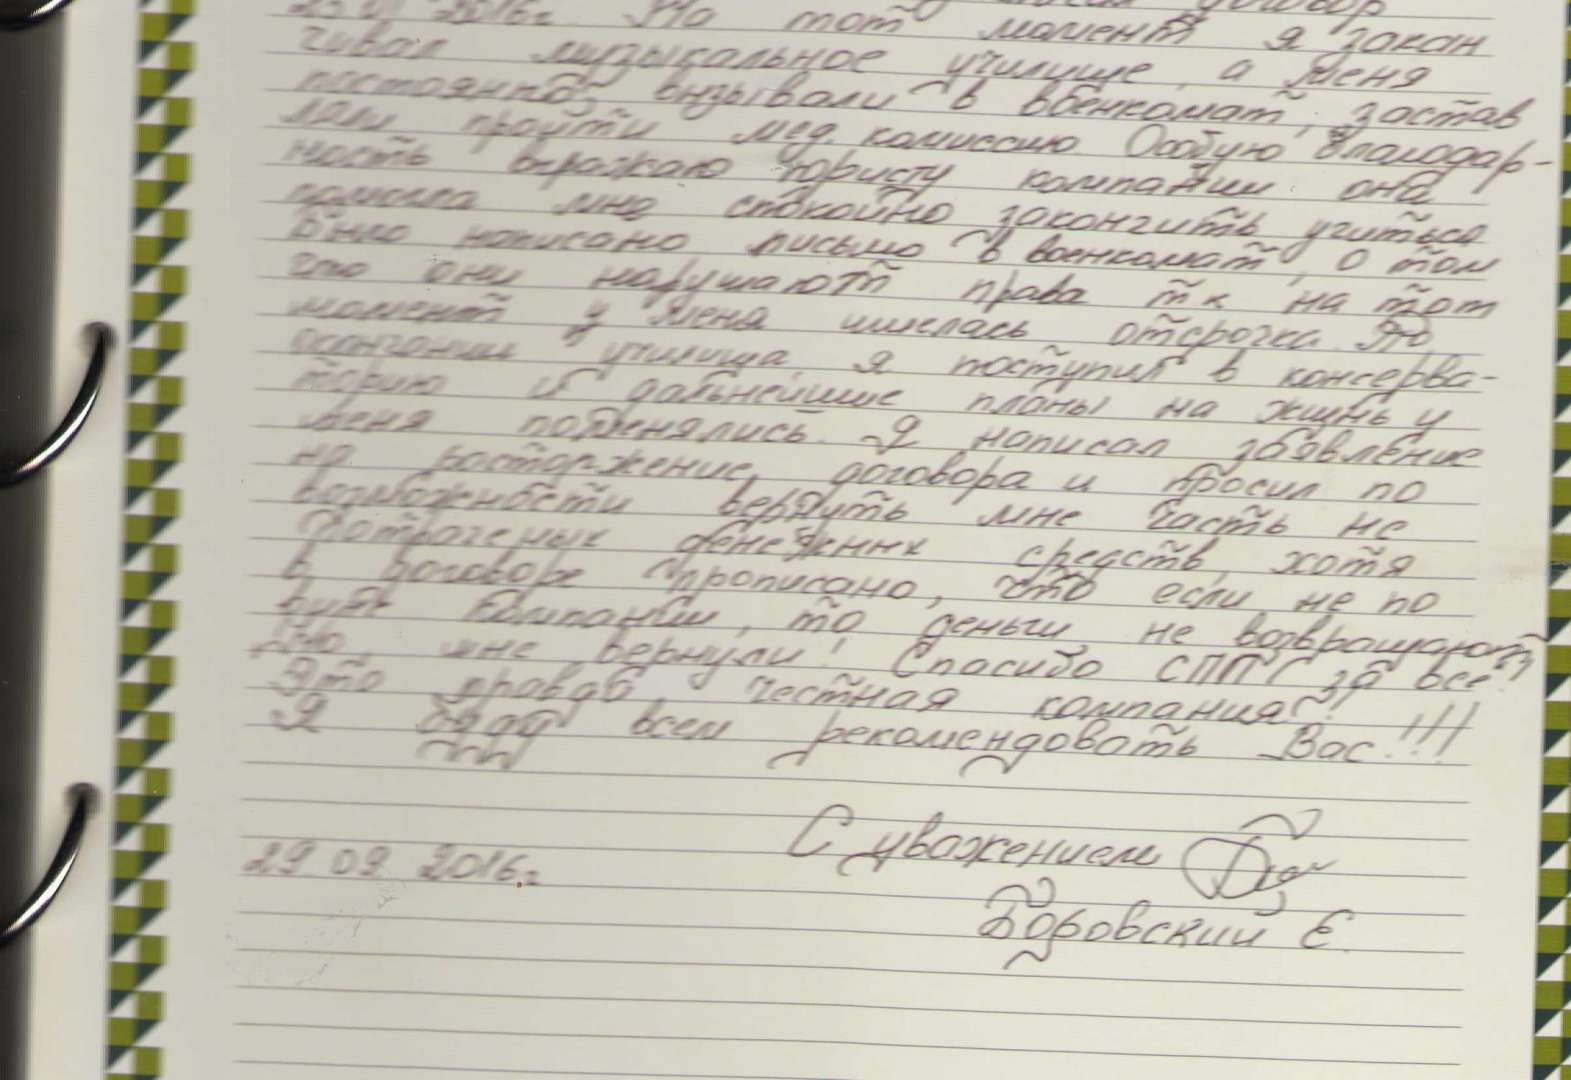 договор
2016г. На тот момент я закан
чивал музыкальное училище, а меня
постоянно вызывали в военкомат, застав
ляли пройти мед. комиссию. Особую благодар-
ность выражаю юристу компании она
помогла мне спокойно закончить учиться
Было написано письмо в военкомат, о том
что они нарушают права т к на тот
момент у меня имелась отсрочка. По
окончании училища, я поступил в консерва-
торию и дальнейшие планы на жизнь у
меня поменялись. Я написал заявление
на расторжение договора и просил по
возможности вернуть мне часть не
потраченых денежных средств, хотя
в договоре прописано, что если не по
вине компании, то деньги не возвращают
Но, мне вернули! Спасибо СППГ за все!
Это правда, честная компания!
Я буду всем рекомендовать Вас!!!
С уважением
29 09 2016г
Боровский Е.